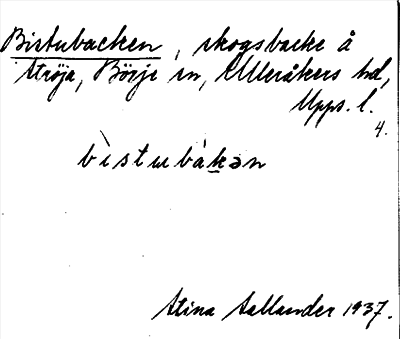 Bistubacken, skogsbacke å
Ströja, Börje sn, Ulleråkers hd,
Upps. l.
4.
bìstubákən
Stina Sallander 1937.